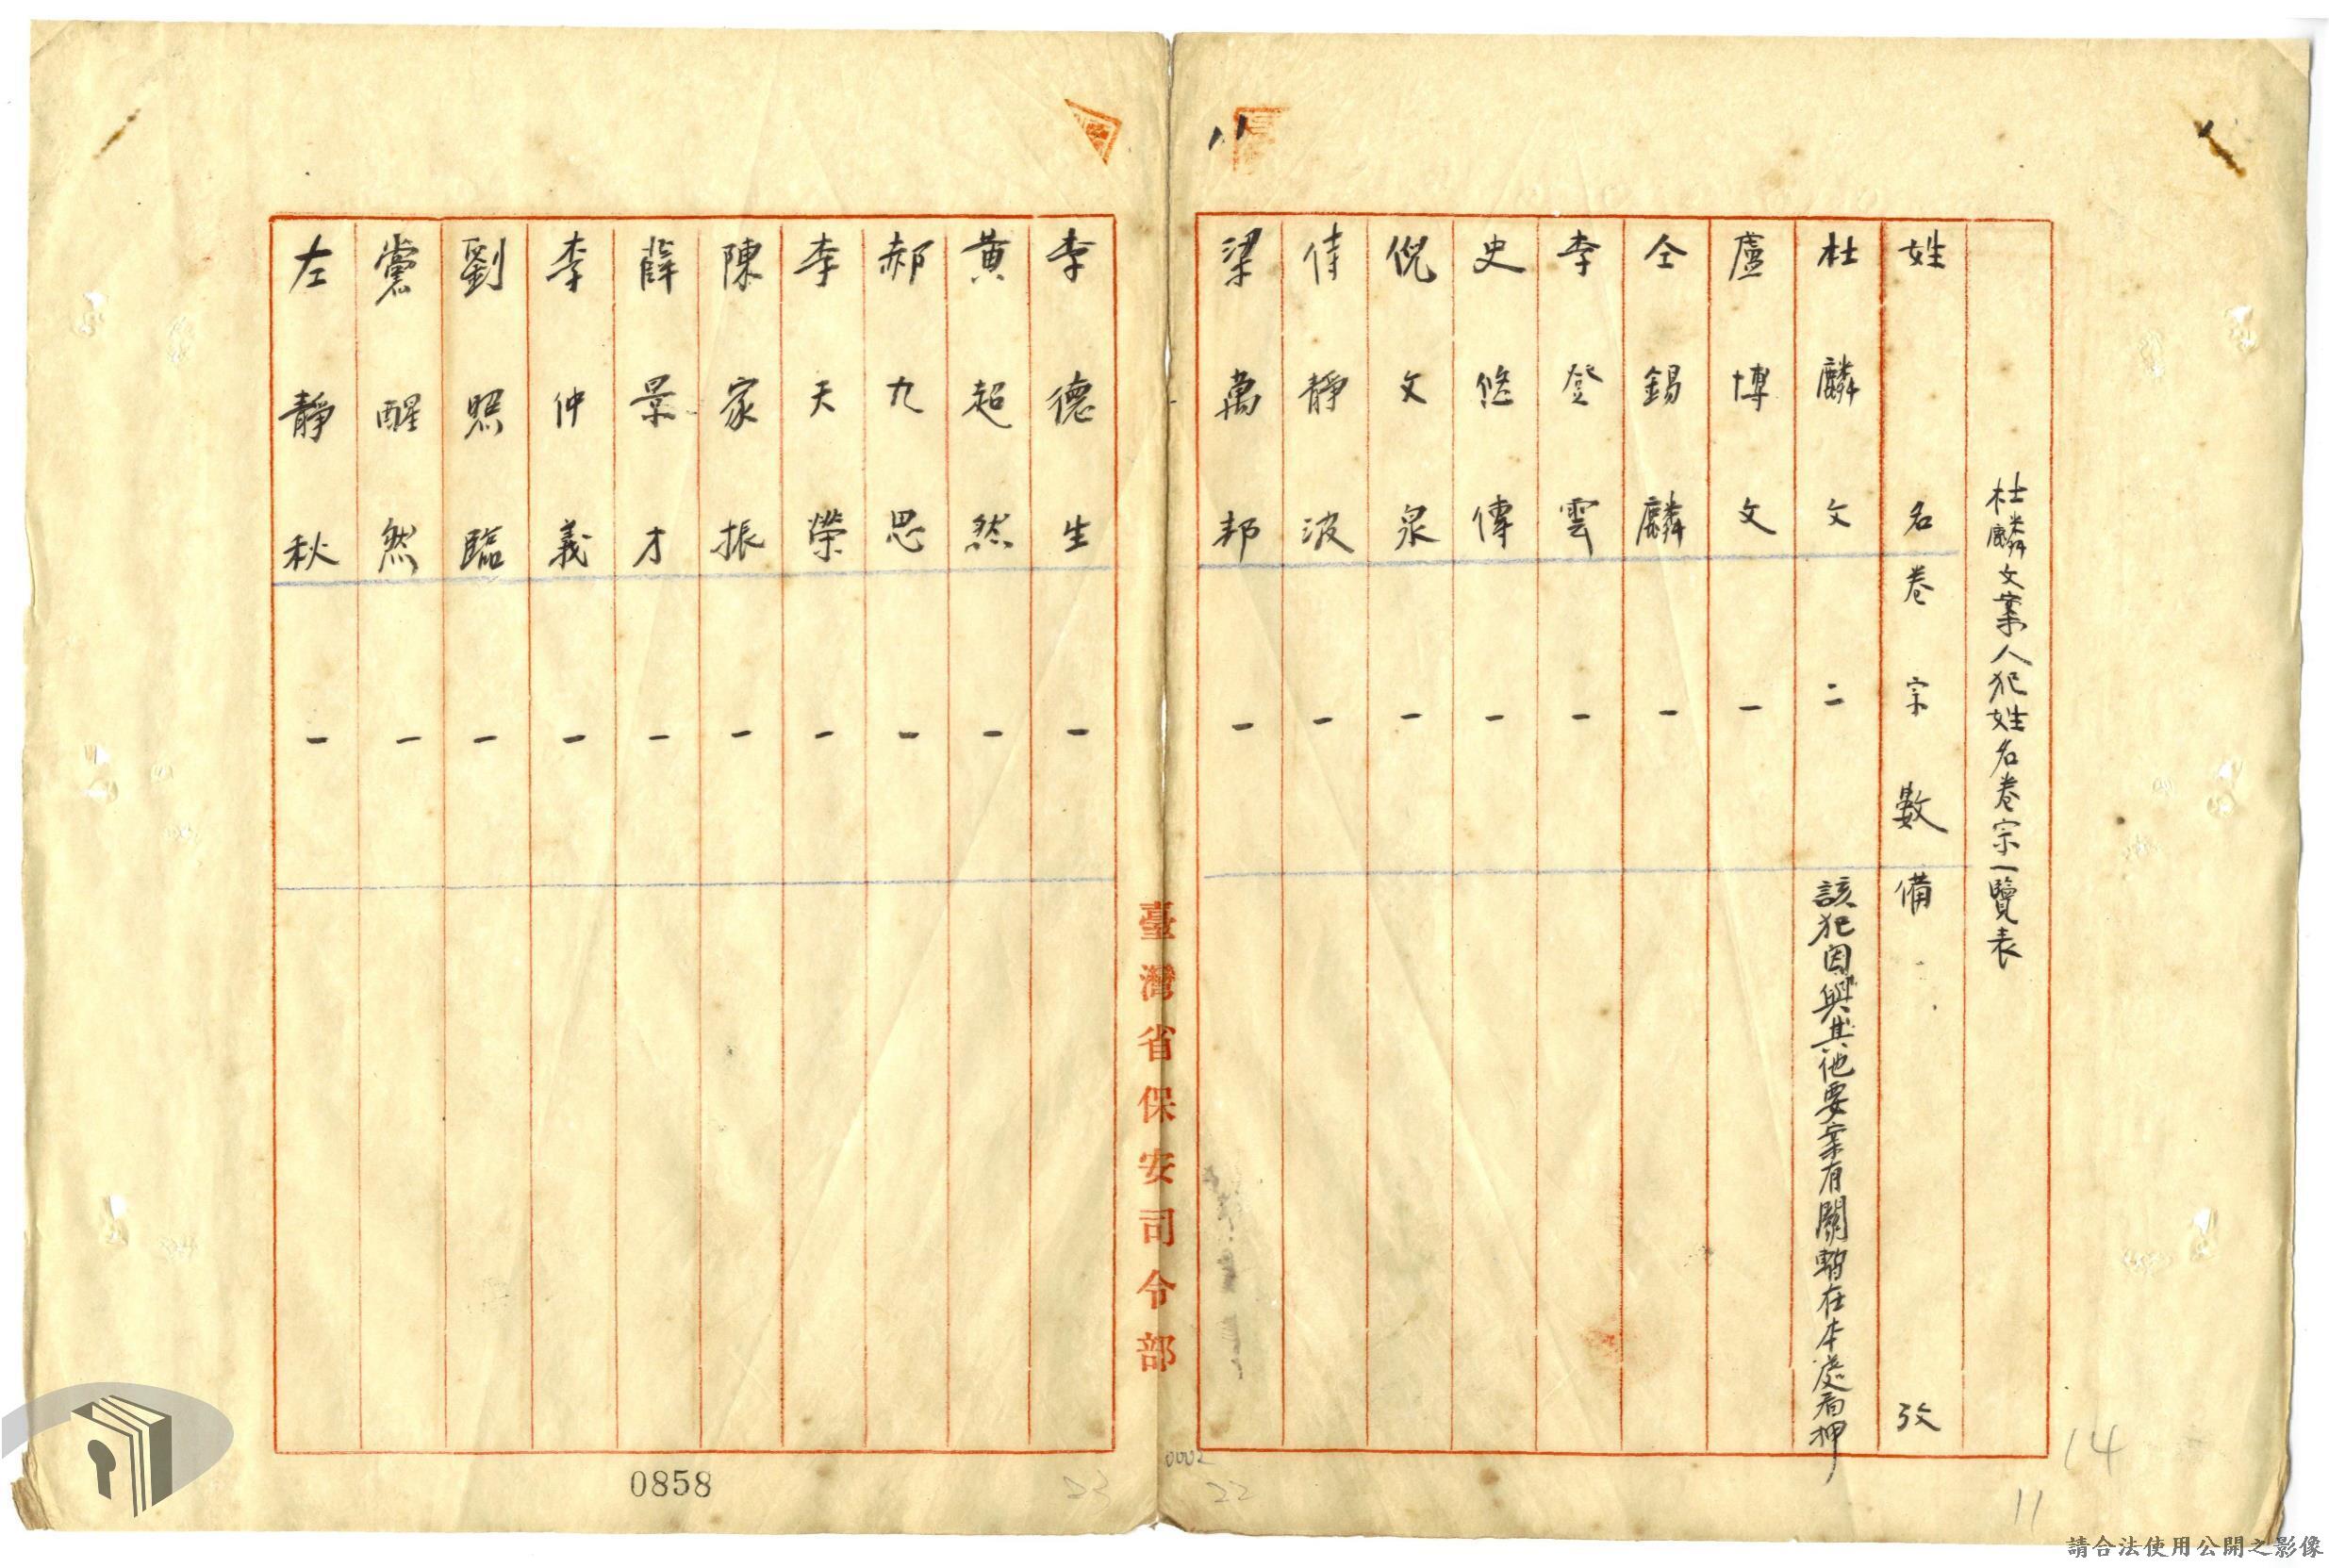 杜麟文案人犯姓名卷宗一覽表
姓名 卷宗數 備攷
杜麟文 二 該犯因與其他要案有關暫在本處看押
盧博文 一
仝錫麟 一
李登雲 一
史悠傳 一
倪文泉 一
侍靜波 一
梁萬邦 一
臺灣省保安司令部
李德生 一
黃超然 一
郝九思 一
李天榮 一
陳家振 一
薛景才 一
李仲義 一
劉照臨 一
黨醒然 一
左靜秋 一
0858
0002
22
23
14
11
請合法使用公開之影像